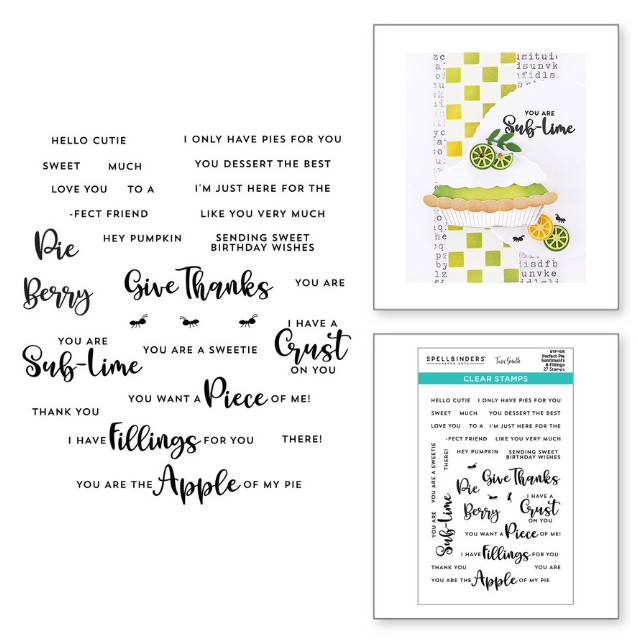 HELLO CUTIE
I ONLY HAVE PIES FOR YOU
SWEET
MUCH
YOU DESSERT THE BEST
LOVE YOU
TO A
I'M JUST HERE FOR THE
-FECT FRIEND
LIKE YOU VERY MUCH
Pie
HEY PUMPKIN
SENDING SWEET
BIRTHDAY WISHES
Berry
Give Thanks
YOU ARE
YOU ARE
Sub-lime
YOU ARE A SWEETIE
I HAVE A
Crust
ON YOU
YOU WANT A Piece OF ME!
THANK YOU
I HAVE fillings FOR YOU
THERE!
YOU ARE THE Apple OF MY PIE
YOU ARE
Sub-lime
SPELLBINDERS
PAPER ARTS
Tina Smith
STP-105
Perfect Pie
Sentiments
& Fillings
27 Stamps
CLEAR STAMPS
HELLO CUTIE
I ONLY HAVE PIES FOR YOU
SWEET
MUCH
YOU DESSERT THE BEST
LOVE YOU
TO A
I'M JUST HERE FOR THE
-FECT FRIEND
LIKE YOU VERY MUCH
HEY PUMPKIN
SENDING SWEET
BIRTHDAY WISHES
YOU ARE A SWEETIE
THERE!
Pie
Give Thanks
YOU ARE
Sub-lime
Berry
I HAVE A
Crust
ON YOU
YOU WANT A Piece OF ME!
I HAVE fillings FOR YOU
THANK YOU
YOU ARE
YOU ARE THE Apple OF MY PIE